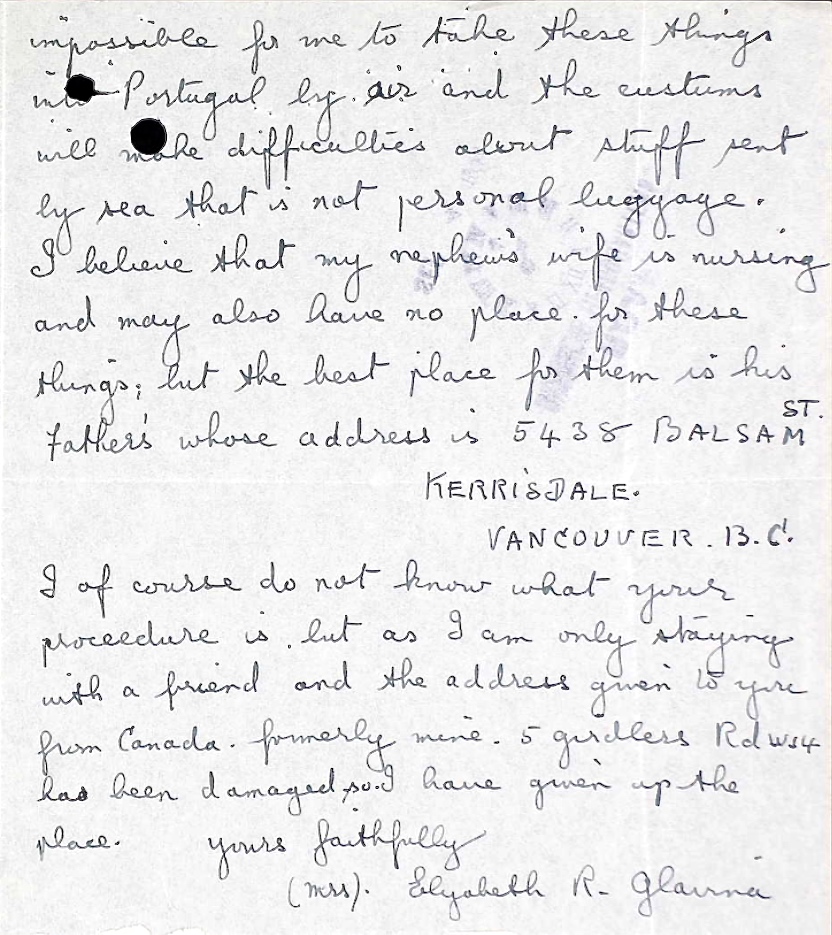 impossible for me to take these things
into Portugal by air and the customs
will make difficulties about stuff sent
by sea that is not personal luggage.
I believe that my nephew's wife is nursing
and may also have no place for these
things; but the best place for them is his
Father's whose address is 5438 BALSAM ST.
KERRISDALE.
VANCOUVER. B.C.
I of course do not know what your
proceedure is, but as I am only staying
with a friend and the address given to you
from Canada. formerly mine. 5 girdlers Rd W14
has been damaged, so I have given up the
place. yours faithfully
(Mrs). Elyabeth R.